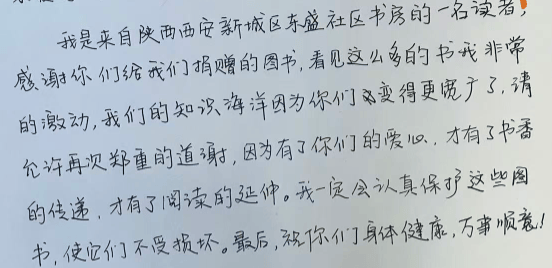 我是来自陕西西安新城区东盛社区书房的一名读者，
感谢你们给我们捐赠的图书，看见这么多的书我非常
的激动，我们的知识海洋因为你们变得更宽广了，请
允许再次郑重的道谢，因为有了你们的爱心，才有了书香
的传递，才有了阅读的延伸。我一定会认真保护这些图
书，使它们不受损坏。最后，祝你们身体健康，万事顺意！